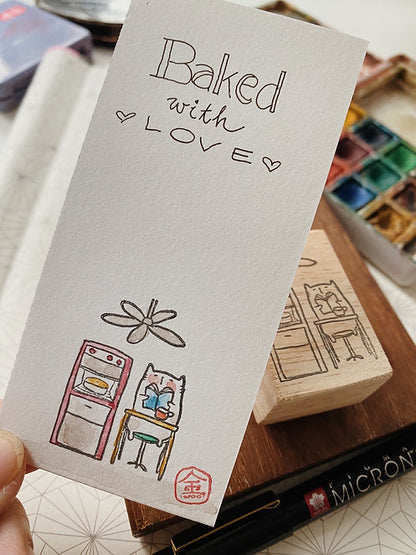 Baked
with
LOVE
金
MICRON